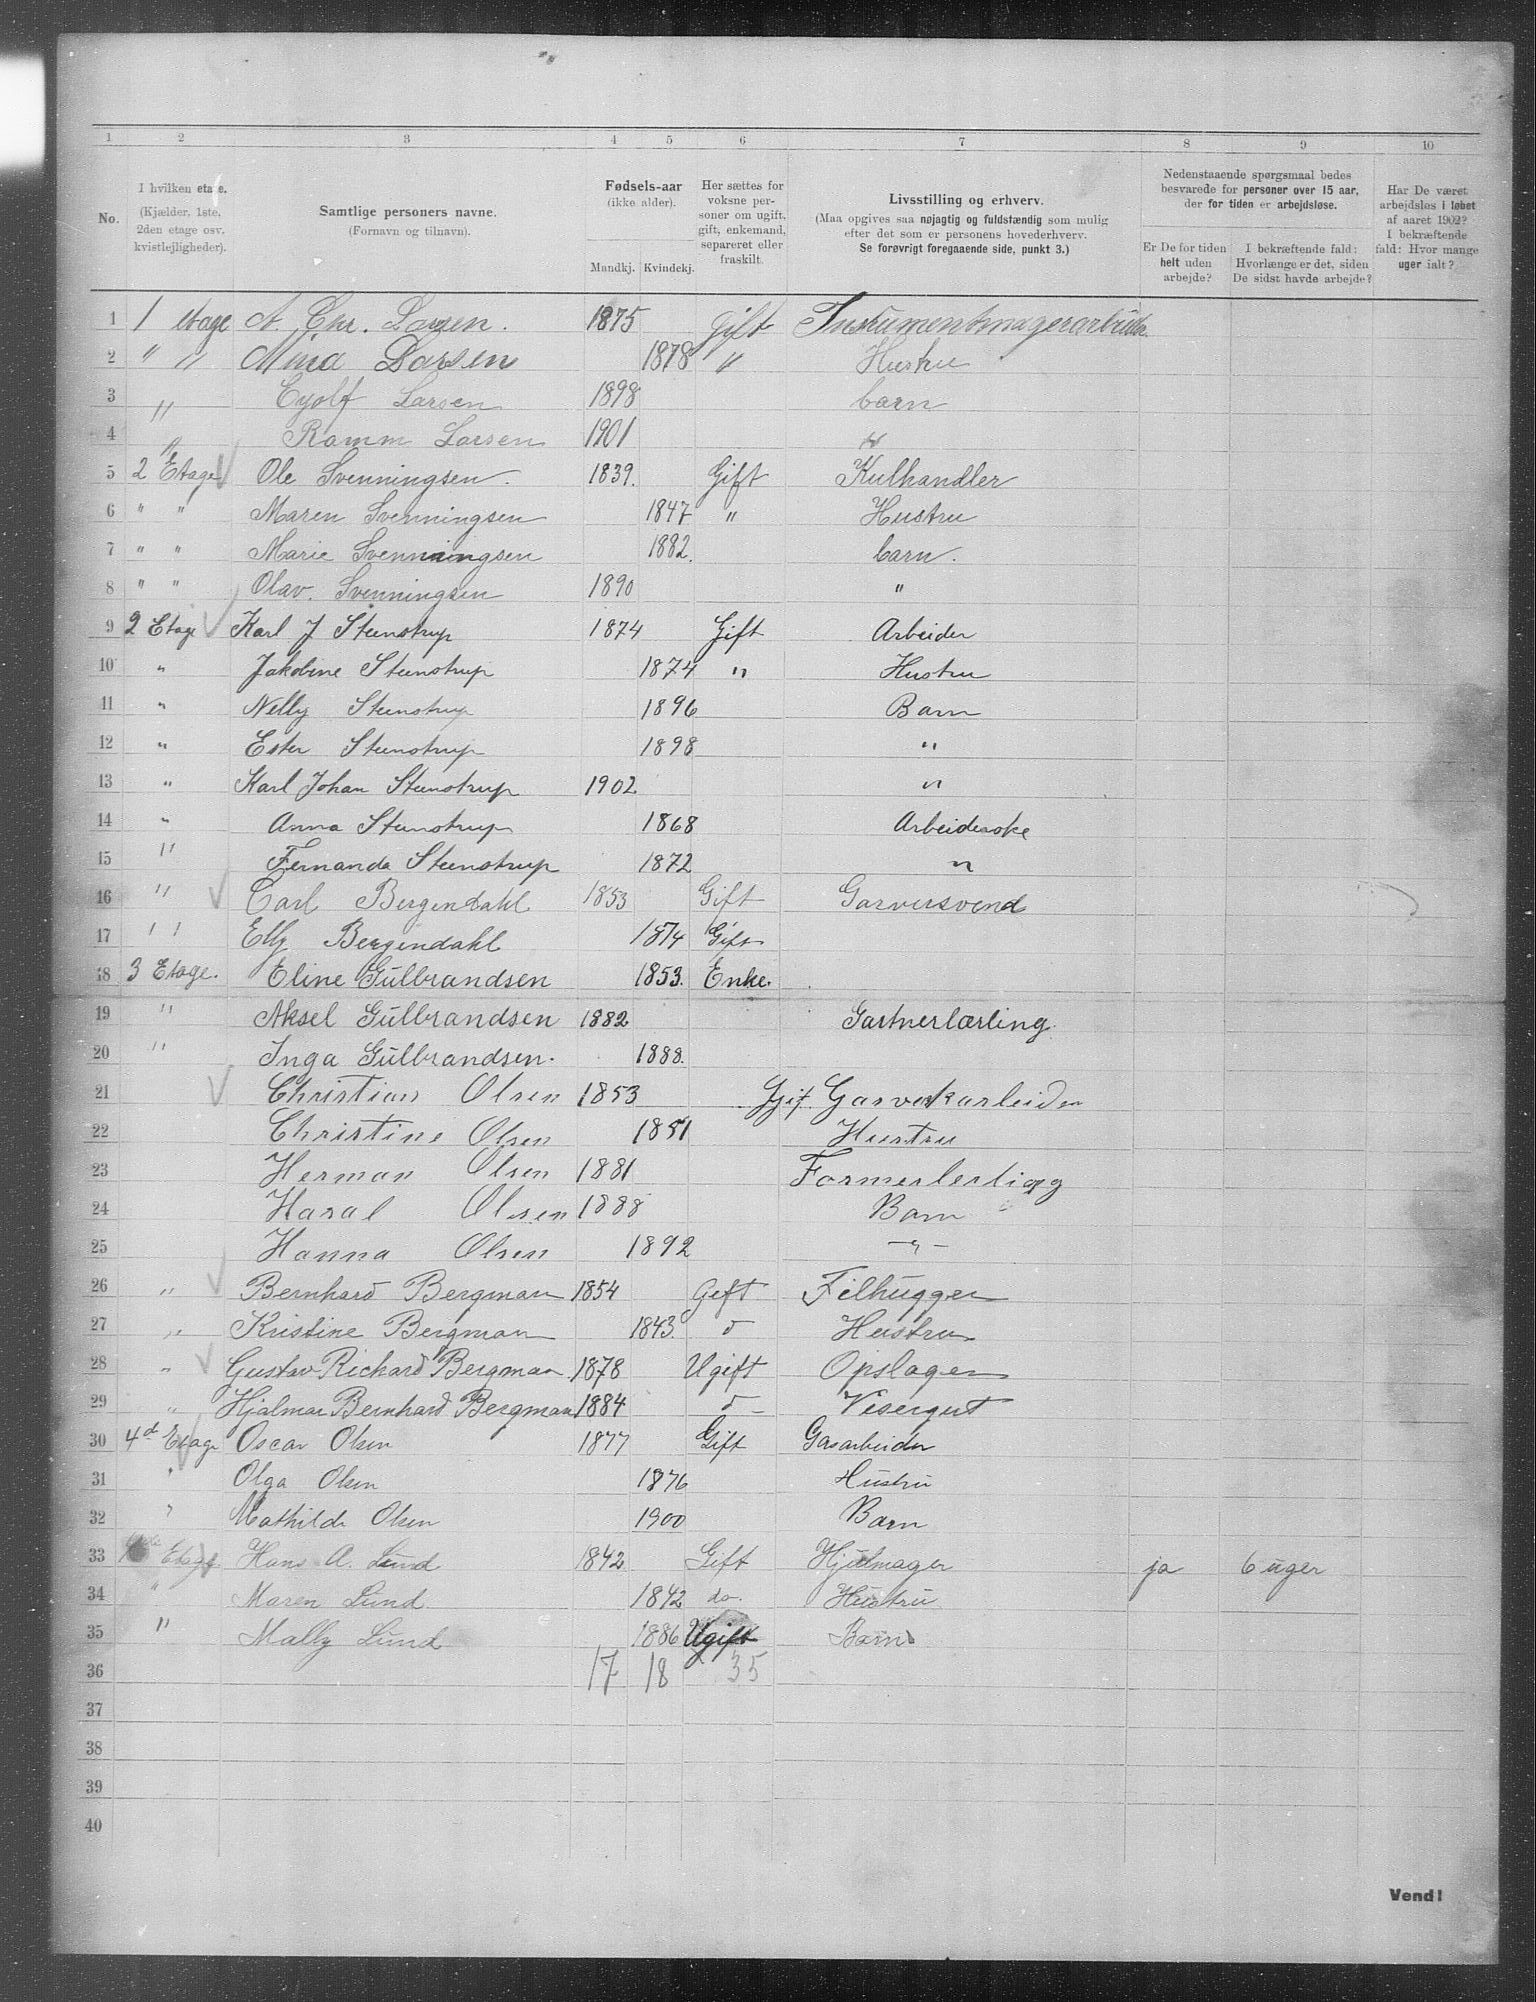 1 2 3 4 5 6 7 8 9 10
No.
I hvilken etage. (Kjælder, 1ste, 2den etage osv. kvistlejligheder).
Samtlige personers navne. (Fornavn og tilnavn).
Fødsels-aar (ikke alder). Mandkj. Kvindekj.
Her sættes for voksne personer om ugift, gift, enkemand, separeret eller fraskilt.
Livsstilling og erhverv. (Maa opgives saa nøjagtig og fuldstændig som mulig efter det som er personens hovederhverv. Se forøvrigt foregaaende side, punkt 3.)
Nedenstaaende spørgsmaal bedes besvarede for personer over 15 aar, der for tiden er arbejdsløse.
Er De for tiden helt uden arbejde?
I bekræftende fald: Hvorlænge er det, siden De sidst havde arbejde?
Har De været arbejdsløs i løbet af aaret 1902? I bekræftende fald: Hvor mange uger ialt?
1 1 etage A. Chr. Larsen. 1875 Gift Instrumentmagerarbeider
2 " " Mina Larsen 1878 " Hustru
3 " Eyolf Larsen 1898 barn
4 " Ramm Larsen 1901 "
5 2 Etage Ole Svenningsen. 1839. Gift Kulhandler
6 " " Maren Svenningsen 1847 " Hustru
7 " " Marie Svenningsen 1882. barn.
8 " " Olav. Svenningsen 1890 "
9 2 Etage Karl J Steenstrup 1874 Gift Arbeider
10 " Jakobine Steenstrup 1874 " Hustru
11 " Nelly Steenstrup 1896 Barn
12 " Ester Steenstrup 1898 "
13 " Karl Johan Steenstrup 1902 "
14 " Anna Steenstrup 1868 Arbeiderske
15 " Fernanda Steenstrup 1872 "
16 " Carl Bergendahl 1853 Gift Garversvend
17 " Elly Bergendahl 1874 Gift
18 3 Etage. Eline Gulbrandsen 1853. Enke.
19 " Aksel Gulbrandsen 1882 Gartnerlærling.
20 " Inga Gulbrandsen. 1888.
21 Christian Olsen 1853 Gif. Gasverkarbeider
22 Christine Olsen 1851 Hustru
23 Herman Olsen 1881 Formerlerling
24 Haral Olsen 1888 Barn
25 Hanna Olsen 1892 — " —
26 " Bernhard Bergman 1854 Geft Filhugger
27 " Kristine Bergman 1843. d Hustru
28 " Gustav Richard Bergman 1878 Ugift Opslager
29 " Hjalmar Bernhard Bergman 1884 d — Visergut
30 4d Etage Oscar Olsen 1877 Gift Gasarbeider
31 " Olga Olsen 1876 Hustru
32 " Mathilde Olsen 1900 Barn
33 Etage Hans A. Lund 1842 Gift Hjulmager ja 6 uger
34 " Maren Lund 1842 do. Hustru
35 " Mally Lund 1886 Ugift Barn
36 17 18 35
37
38
39
40
Vend!